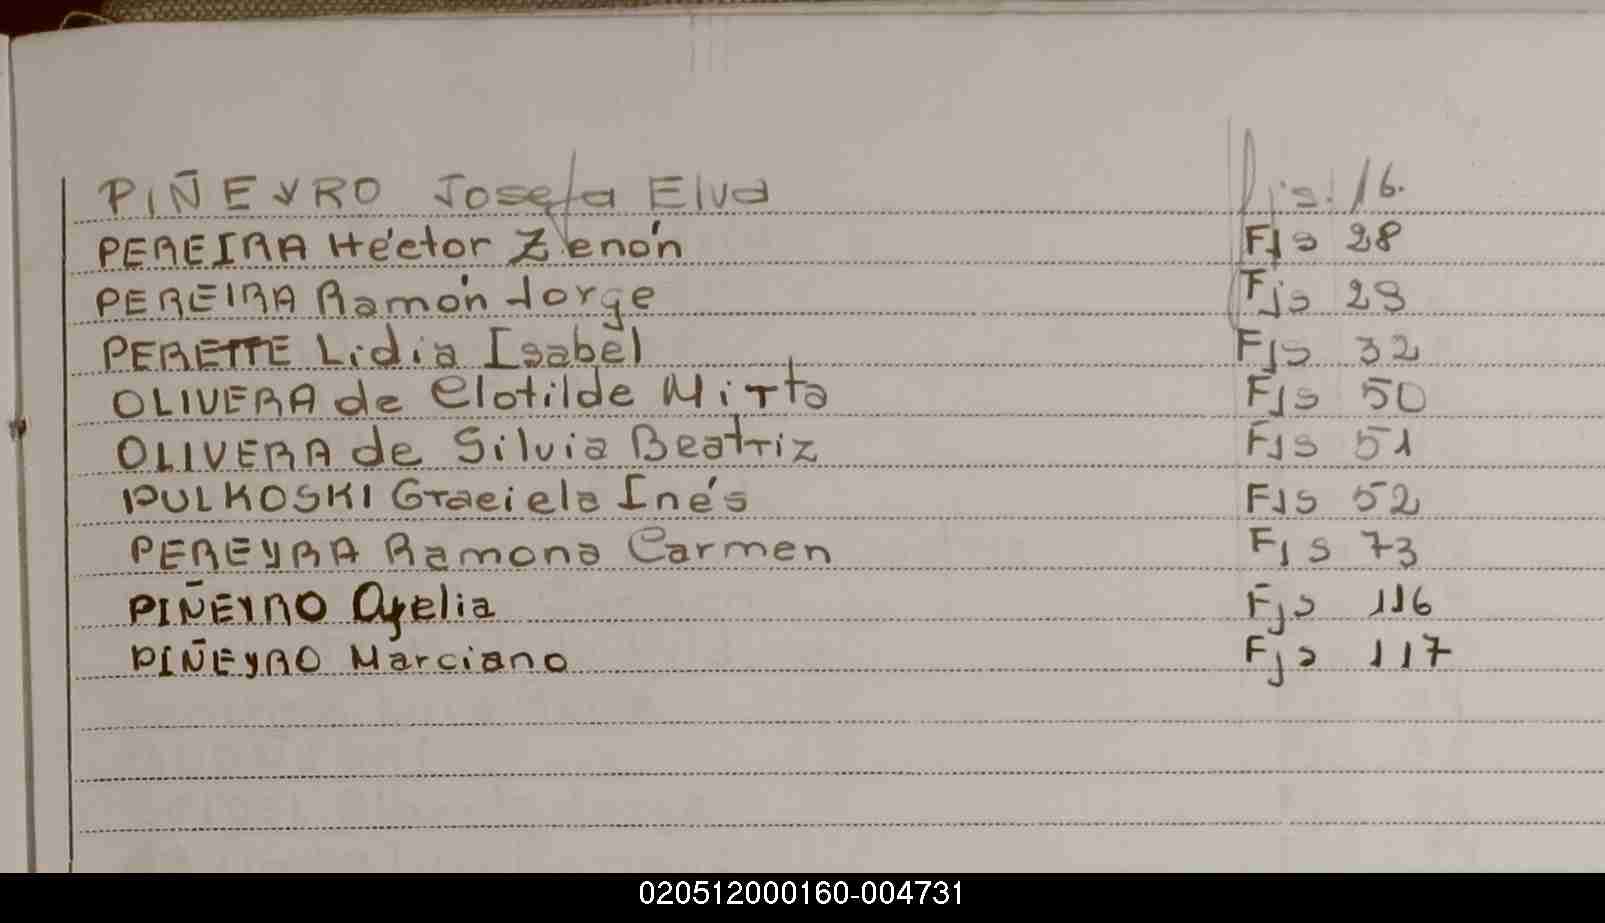 PIÑEYRO Josefa Elva fjs: 16.
PEREIRA Héctor Zenón Fjs 28
PEREIRA Ramón Jorge Fjs 29
PERETTE Lidia Isabel Fjs 32
OLIVERA de Clotilde Mirta Fjs 50
OLIVERA de Silvia Beatriz Fjs 51
PULKOSKI Graciela Inés Fjs 52
PEREYRA Ramona Carmen Fjs 73
PIÑEYRO Fjs 116
PIÑEYRO Marciano Fjs 117
020512000160-004731